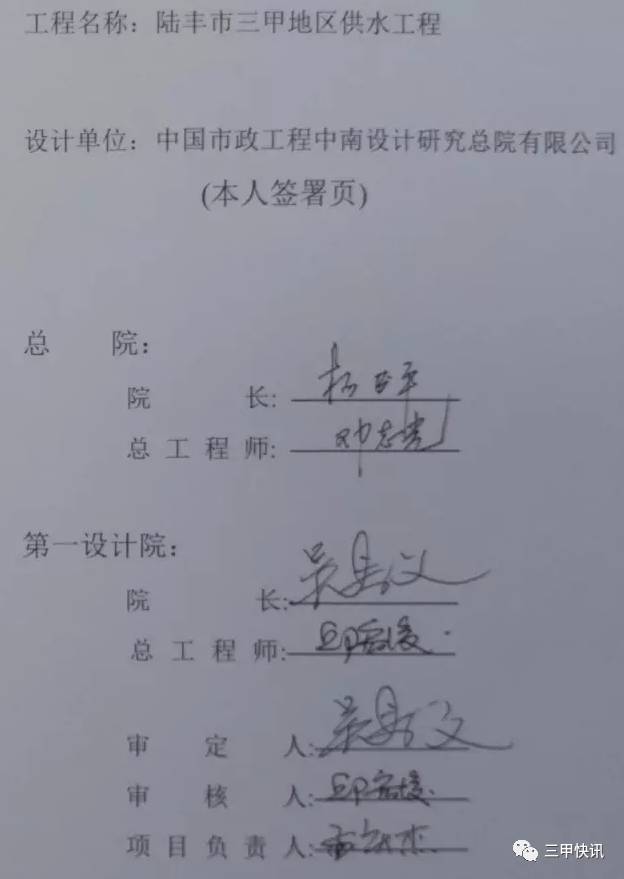 工程名称：陆丰市三甲地区供水工程
设计单位：中国市政工程中南设计研究总院有限公司
(本人签署页)
总 院：
院 长:
总工程师: 邓志光
第一设计院：
院 长:
总工程师:
审 定 人:
审 核 人:
项目负责人:
三甲快讯